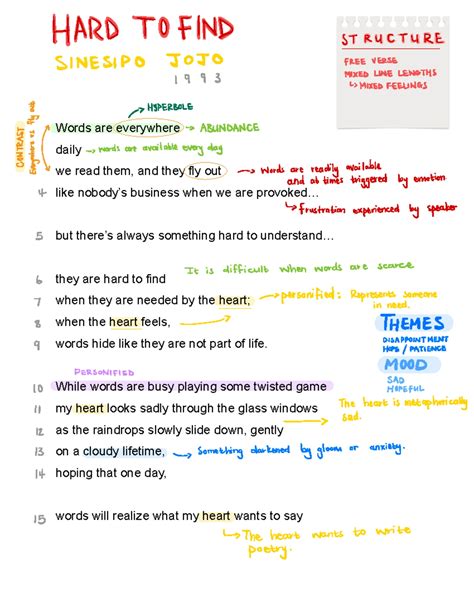 HARD TO FIND
SINESIPO JOJO
1993
STRUCTURE
FREE VERSE
MIXED LINE LENGTHS
↳ MIXED FEELINGS
→ HYPERBOLE
CONTRAST
Everywhere vs fly out
Words are everywhere → ABUNDANCE
daily → words are available every day
we read them, and they fly out → Words are readily available
and at times triggered by emotion
4 like nobody's business when we are provoked...
↳ frustration experienced by speaker
5 but there's always something hard to understand...
It is difficult when words are scarce
6 they are hard to find
7 when they are needed by the heart; → personified: Represents someone
in need.
8 when the heart feels,
9 words hide like they are not part of life.
THEMES
DISAPPOINTMENT
HOPE / PATIENCE
MOOD
SAD
HOPEFUL
PERSONIFIED
10 While words are busy playing some twisted game
11 my heart looks sadly through the glass windows
The heart is metaphorically
sad.
12 as the raindrops slowly slide down, gently
13 on a cloudy lifetime, → Something darkened by gloom or anxiety.
14 hoping that one day,
15 words will realize what my heart wants to say
↳ The heart wants to write
poetry.